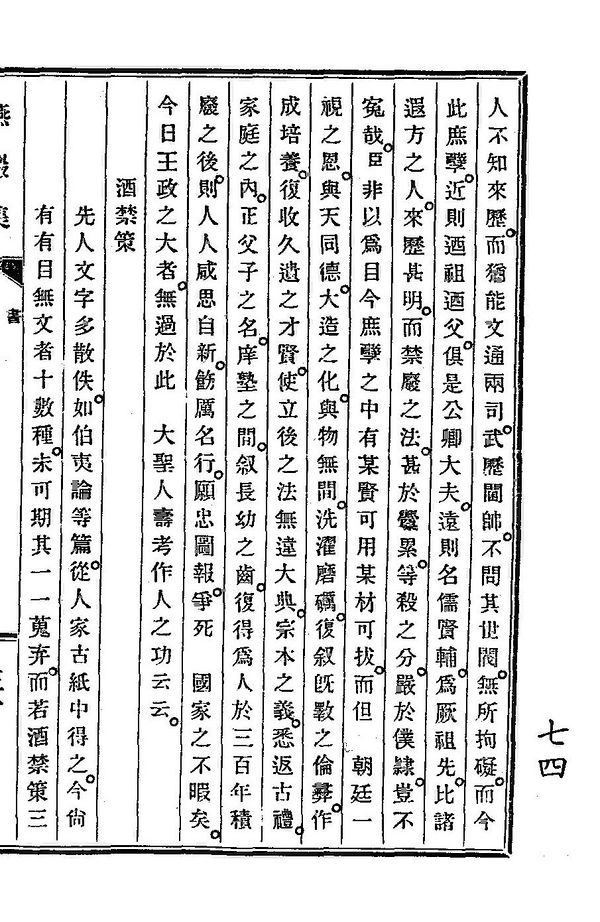 人不知來歷。而猶能文通兩司。武歷閫帥。不問其世閥。無所拘礙。而今
此庶孼。近則迺祖迺父。俱是公卿大夫。遠則名儒賢輔。爲厥祖先。比諸
遐方之人。來歷甚明。而禁廢之法。甚於釁累。等殺之分。嚴於僕隷。豈不
寃哉。臣非以爲目今庶孼之中有某賢可用某材可拔。而但　朝廷一
視之恩。與天同德。大造之化。與物無間。洗濯磨礪。復叙旣斁之倫彝。作
成培養。復收久遺之才賢。使立後之法無違大典。宗本之義。悉返古禮。
家庭之內。正父子之名。庠塾之間。叙長幼之齒。復得爲人於三百年積
廢之後。則人人咸思自新。飭厲名行。願忠圖報。爭死　國家之不暇矣。
今日王政之大者。無過於此　大聖人壽考作人之功云云。
酒禁策
先人文字多散佚。如伯夷論等篇。從人家古紙中得之。今尙
有有目無文者十數種。未可期其一一蒐弃。而若酒禁策三
書
七四